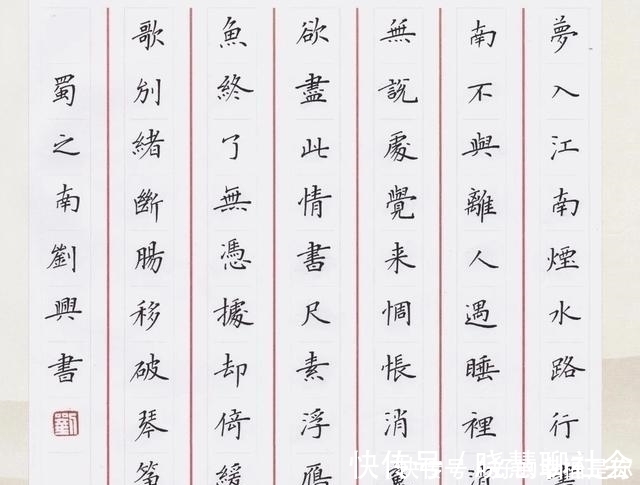 夢入江南煙水路行
南不與離人遇睡裡消
無說處覺来惆悵消
欲盡此情書尺素浮鴈
魚終了無憑據却倚緩
歌別緒斷腸移破琴筝
蜀之南劉興書
劉
快传号/晓慧聊社会